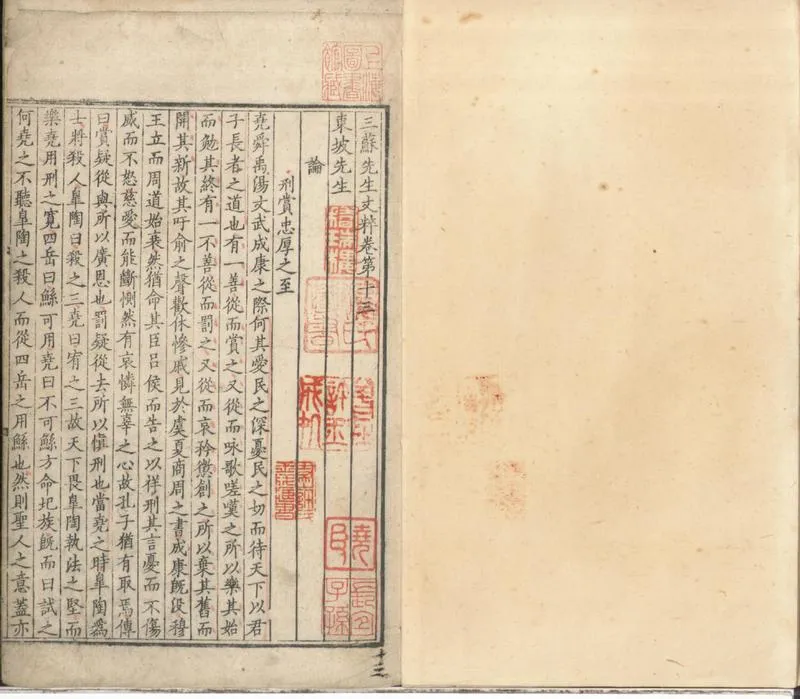 上海圖書館藏
三蘇先生文粹卷第十三
東坡先生
論
刑賞忠厚之至
堯舜禹湯文武成康之際何其愛民之深憂民之切而待天下以君
子長者之道也有一善從而賞之又從而咏歌嗟嘆之所以樂其始
而勉其終有一不善從而罰之又從而哀矜懲創之所以棄其舊而
開其新故其吁俞之聲歡休慘戚見於虞夏商周之書成康既没穆
王立而周道始衰然猶命其臣呂侯而告之以祥刑其言憂而不傷
威而不怒慈愛而能斷惻然有哀憐無辜之心故孔子猶有取焉傳
曰賞疑從與所以廣恩也罰疑從去所以慎刑也當堯之時皐陶為
士將殺人皐陶曰殺之三堯曰宥之三故天下畏皐陶執法之堅而
樂堯用刑之寬四岳曰鯀可用堯曰不可鯀方命圮族既而曰試之
何堯之不聽皐陶之殺人而從四岳之用鯀也然則聖人之意蓋亦
十三